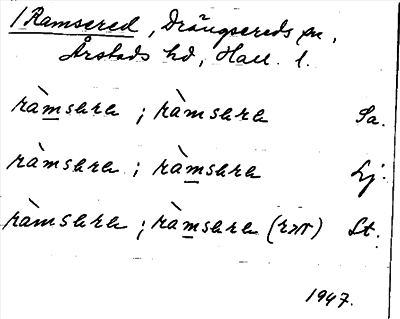 /Ramsered, Drängsereds sn,
Årstads hd, Hall. l.
ràmsərə ; ràmsərə Sa.
ràmsərə ; ràmsərə Lj.
ràmsərə ; ràmsərə St.
1947.